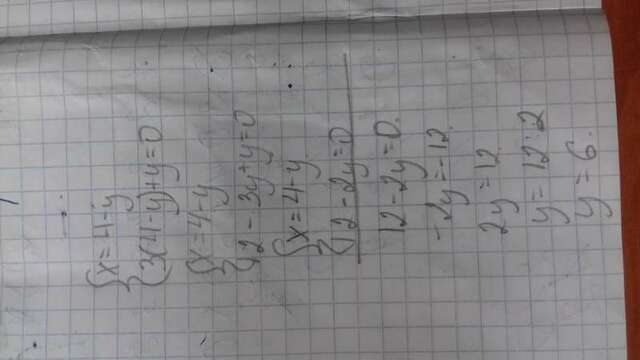 x=4-y
3(4-y)+y=0
x=4-y
12-3y+y=0
x=4-y
12-2y=0
12-2y=0.
-2y=-12
2y=12
y=12:2
y=6.